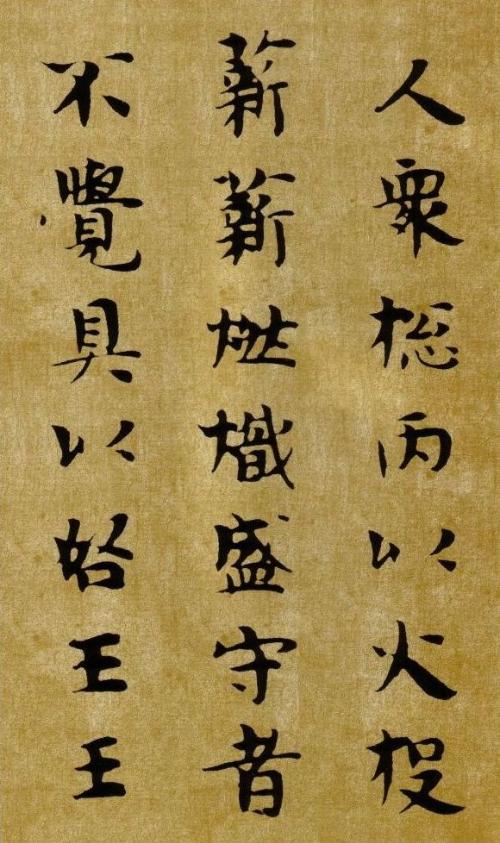 人衆捴丙以火投
薪薪燃熾盛守者
不覺具以始王王